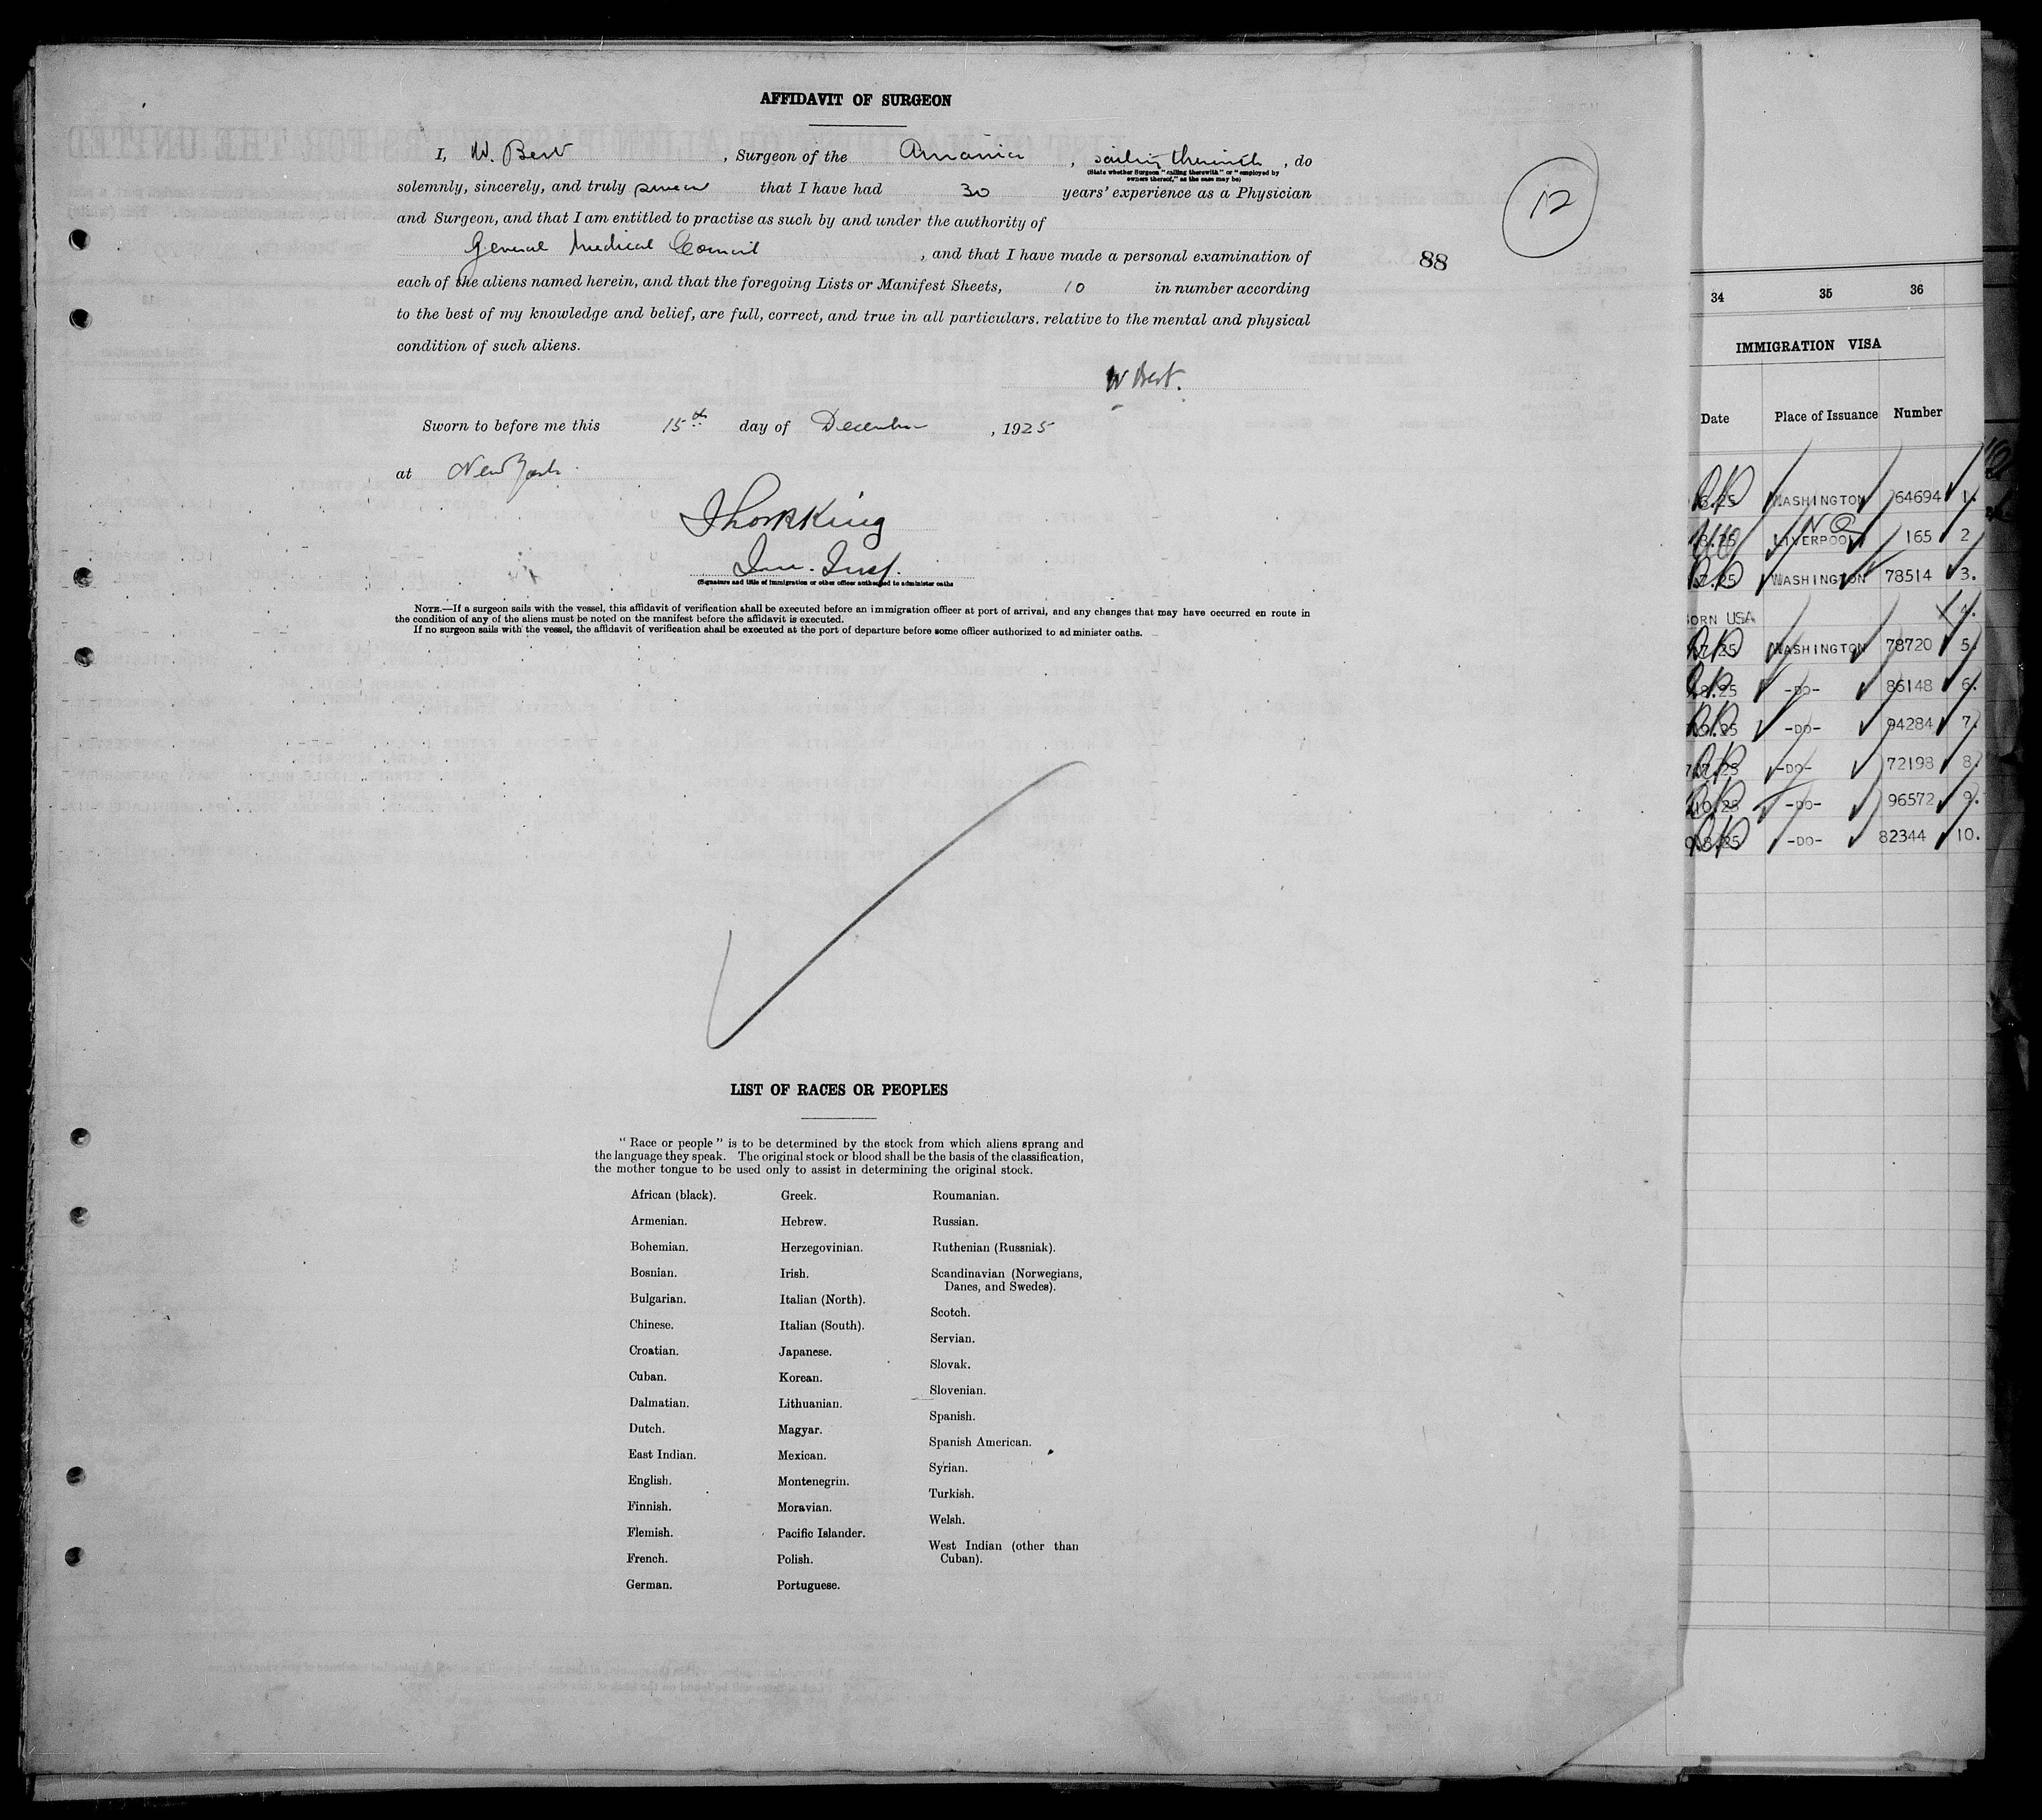 AFFIDAVIT OF SURGEON
I, W. Bert, Surgeon of the, sailing therewith, do
(State whether Surgeon "sailing therewith" or "employed by
owners thereof," as the case may be)
solemnly, sincerely, and truly swear that I have had 30 years' experience as a Physician
and Surgeon, and that I am entitled to practise as such by and under the authority of
General Medical Council, and that I have made a personal examination of
each of the aliens named herein, and that the foregoing Lists or Manifest Sheets, 10 in number according
to the best of my knowledge and belief, are full, correct, and true in all particulars. relative to the mental and physical
condition of such aliens.
12
88
W Bert.
Sworn to before me this 15th day of December, 1925
at New York.
Imm. Insp.
(Signature and title of immigration or other officer authorized to administer oaths
NOTE.—If a surgeon sails with the vessel, this affidavit of verification shall be executed before an immigration officer at port of arrival, and any changes that may have occurred en route in
the condition of any of the aliens must be noted on the manifest before the affidavit is executed.
If no surgeon sails with the vessel, the affidavit of verification shall be executed at the port of departure before some officer authorized to administer oaths.
LIST OF RACES OR PEOPLES
"Race or people" is to be determined by the stock from which aliens sprang and
the language they speak. The original stock or blood shall be the basis of the classification,
the mother tongue to be used only to assist in determining the original stock.
African (black).
Armenian.
Bohemian.
Bosnian.
Bulgarian.
Chinese.
Croatian.
Cuban.
Dalmatian.
Dutch.
East Indian.
English.
Finnish.
Flemish.
French.
German.
Greek.
Hebrew.
Herzegovinian.
Irish.
Italian (North).
Italian (South).
Japanese.
Korean.
Lithuanian.
Magyar.
Mexican.
Montenegrin.
Moravian.
Pacific Islander.
Polish.
Portuguese.
Roumanian.
Russian.
Ruthenian (Russniak).
Scandinavian (Norwegians,
Danes, and Swedes).
Scotch.
Servian.
Slovak.
Slovenian.
Spanish.
Spanish American.
Syrian.
Turkish.
Welsh.
West Indian (other than
Cuban).
34 35 36
IMMIGRATION VISA
Date Place of Issuance Number
WASHINGTON 64694 1.
LIVERPOOL 165 2
WASHINGTON 78514 3.
BORN USA 4.
WASHINGTON 78720 5.
-DO- 86148 6.
-DO- 94284 7.
-DO- 72198 8.
-DO- 96572 9.
-DO- 82344 10.